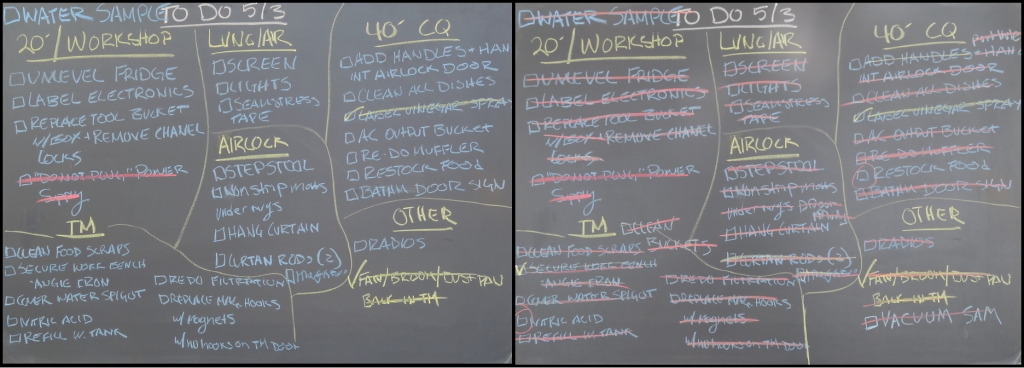 WATER SAMPLE
TO DO 5/3
20' / WORKSHOP
UNLEVEL FRIDGE
LABEL ELECTRONICS
REPLACE TOOL BUCKET
W/BOX + REMOVE CHANEL
LOCKS
"DO NOT PLUG" POWER
LUNG/AIR
SCREEN
LIGHTS
SEAMSTRESS
TAPE
AIRLOCK
STEPSTOOL
Nonslip mats
under rugs
HANG CURTAIN
CURTAIN RODS (2)
Magnets
40' CQ
ADD HANDLES + HAN
INT AIRLOCK DOOR
CLEAN ALL DISHES
LABEL VINEGAR SPRAY
AC OUTPUT BUCKET
RE-DO MUFFLER
RESTOCK FOOD
BATHM DOOR SIGN
OTHER
RADIOS
FAN/BROOM/DUST PAN
BACK IN TM
TM
CLEAN FOOD SCRAPS
SECURE WORK BENCH
ANGLE IRON
COVER WATER SPIGOT
NITRIC ACID
REFILL W. TANK
REDO FILTRATION
REPLACE MAG. HOOKS
w/ magnets
w/ NU hooks on TM Door
WATER SAMPLE
TO DO 5/3
20' / WORKSHOP
UNLEVEL FRIDGE
LABEL ELECTRONICS
REPLACE TOOL BUCKET
W/BOX + REMOVE CHANEL
LOCKS
"DO NOT PLUG" POWER
LUNG/AIR
SCREEN
LIGHTS
SEAMSTRESS
TAPE
AIRLOCK
STEPSTOOL
Nonslip mats
under rugs
HANG CURTAIN
CURTAIN RODS (2)
Magnets
40' CQ
ADD HANDLES + HAN
INT AIRLOCK DOOR
CLEAN ALL DISHES
LABEL VINEGAR SPRAY
AC OUTPUT BUCKET
RE-DO MUFFLER
RESTOCK FOOD
BATHM DOOR SIGN
OTHER
RADIOS
FAN/BROOM/DUST PAN
BACK IN TM
VACUUM SAM
TM
CLEAN
BUCKETS
CLEAN FOOD SCRAPS
SECURE WORK BENCH
ANGLE IRON
COVER WATER SPIGOT
NITRIC ACID
REFILL W. TANK
REDO FILTRATION
REPLACE MAG. HOOKS
w/ magnets
w/ NU hooks on TM Door